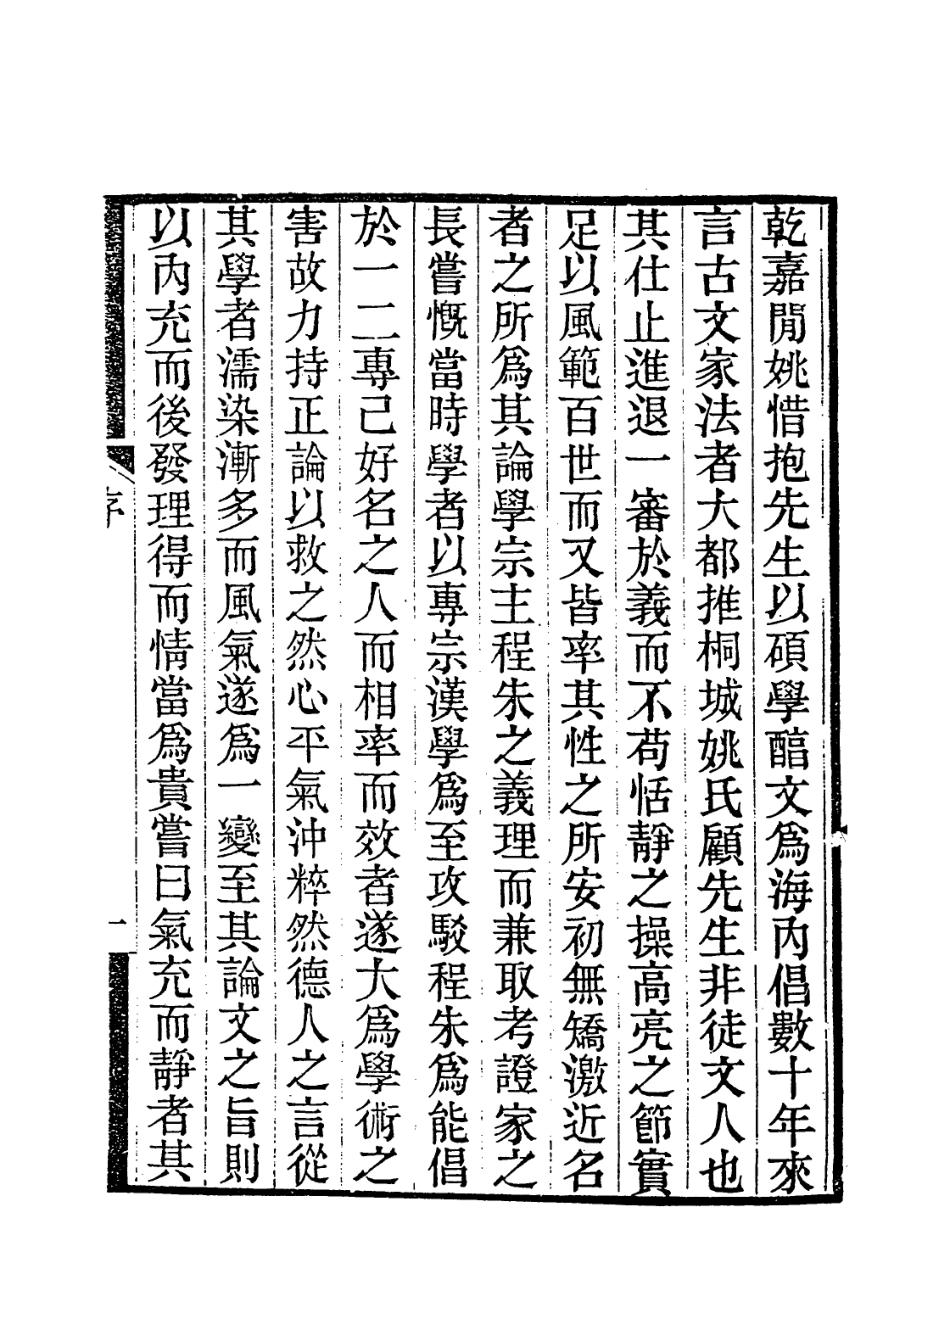 乾嘉閒姚惜抱先生以碩學醕文爲海內倡數十年來
言古文家法者大都推桐城姚氏顧先生非徒文人也
其仕止進退一審於義而不苟恬靜之操高亮之節實
足以風範百世而又皆率其性之所安初無矯激近名
者之所爲其論學宗主程朱之義理而兼取考證家之
長嘗慨當時學者以專宗漢學爲至攻駁程朱爲能倡
於一二專己好名之人而相率而效者遂大爲學術之
害故力持正論以救之然心平氣沖粹然德人之言從
其學者濡染漸多而風氣遂爲一變至其論文之旨則
以內充而後發理得而情當爲貴嘗曰氣充而靜者其
序
一